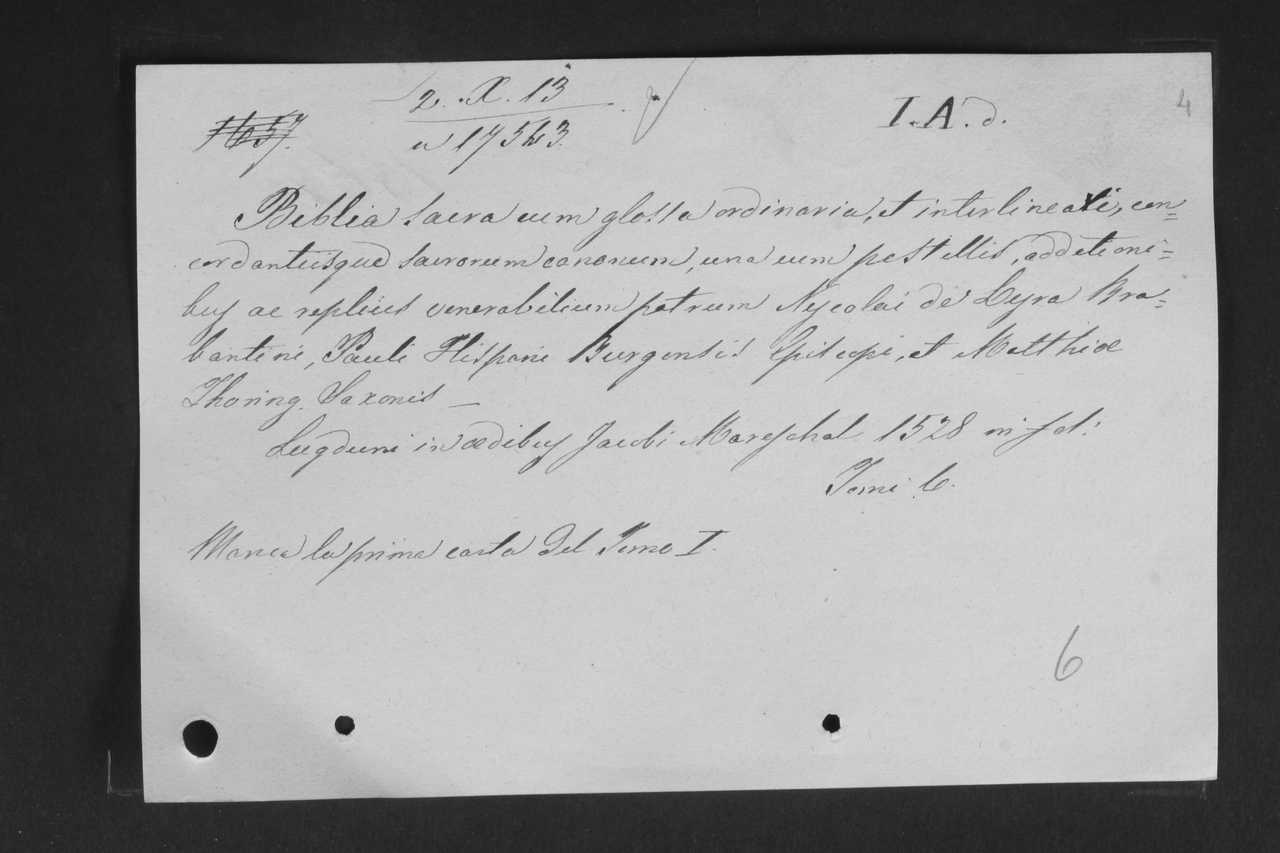 2. X. 13
I. A. d.
4
a 17563.
Biblia sacra cum glossa ordinaria, et interlineali, con=
cordantiisque sacrorum canonum, una cum postillis, additioni=
bus ac replicis venerabilium patrum Nycolai de Lyra Bra=
bantini, Pauli Hispani Burgensis Episcopi, et Matthiæ
Thoring. Saxonis —
Lugduni in ædibus Jacobi Mareschal 1528 in fol:
Tomi 6.
Manca la prima carta del Tomo I.
6